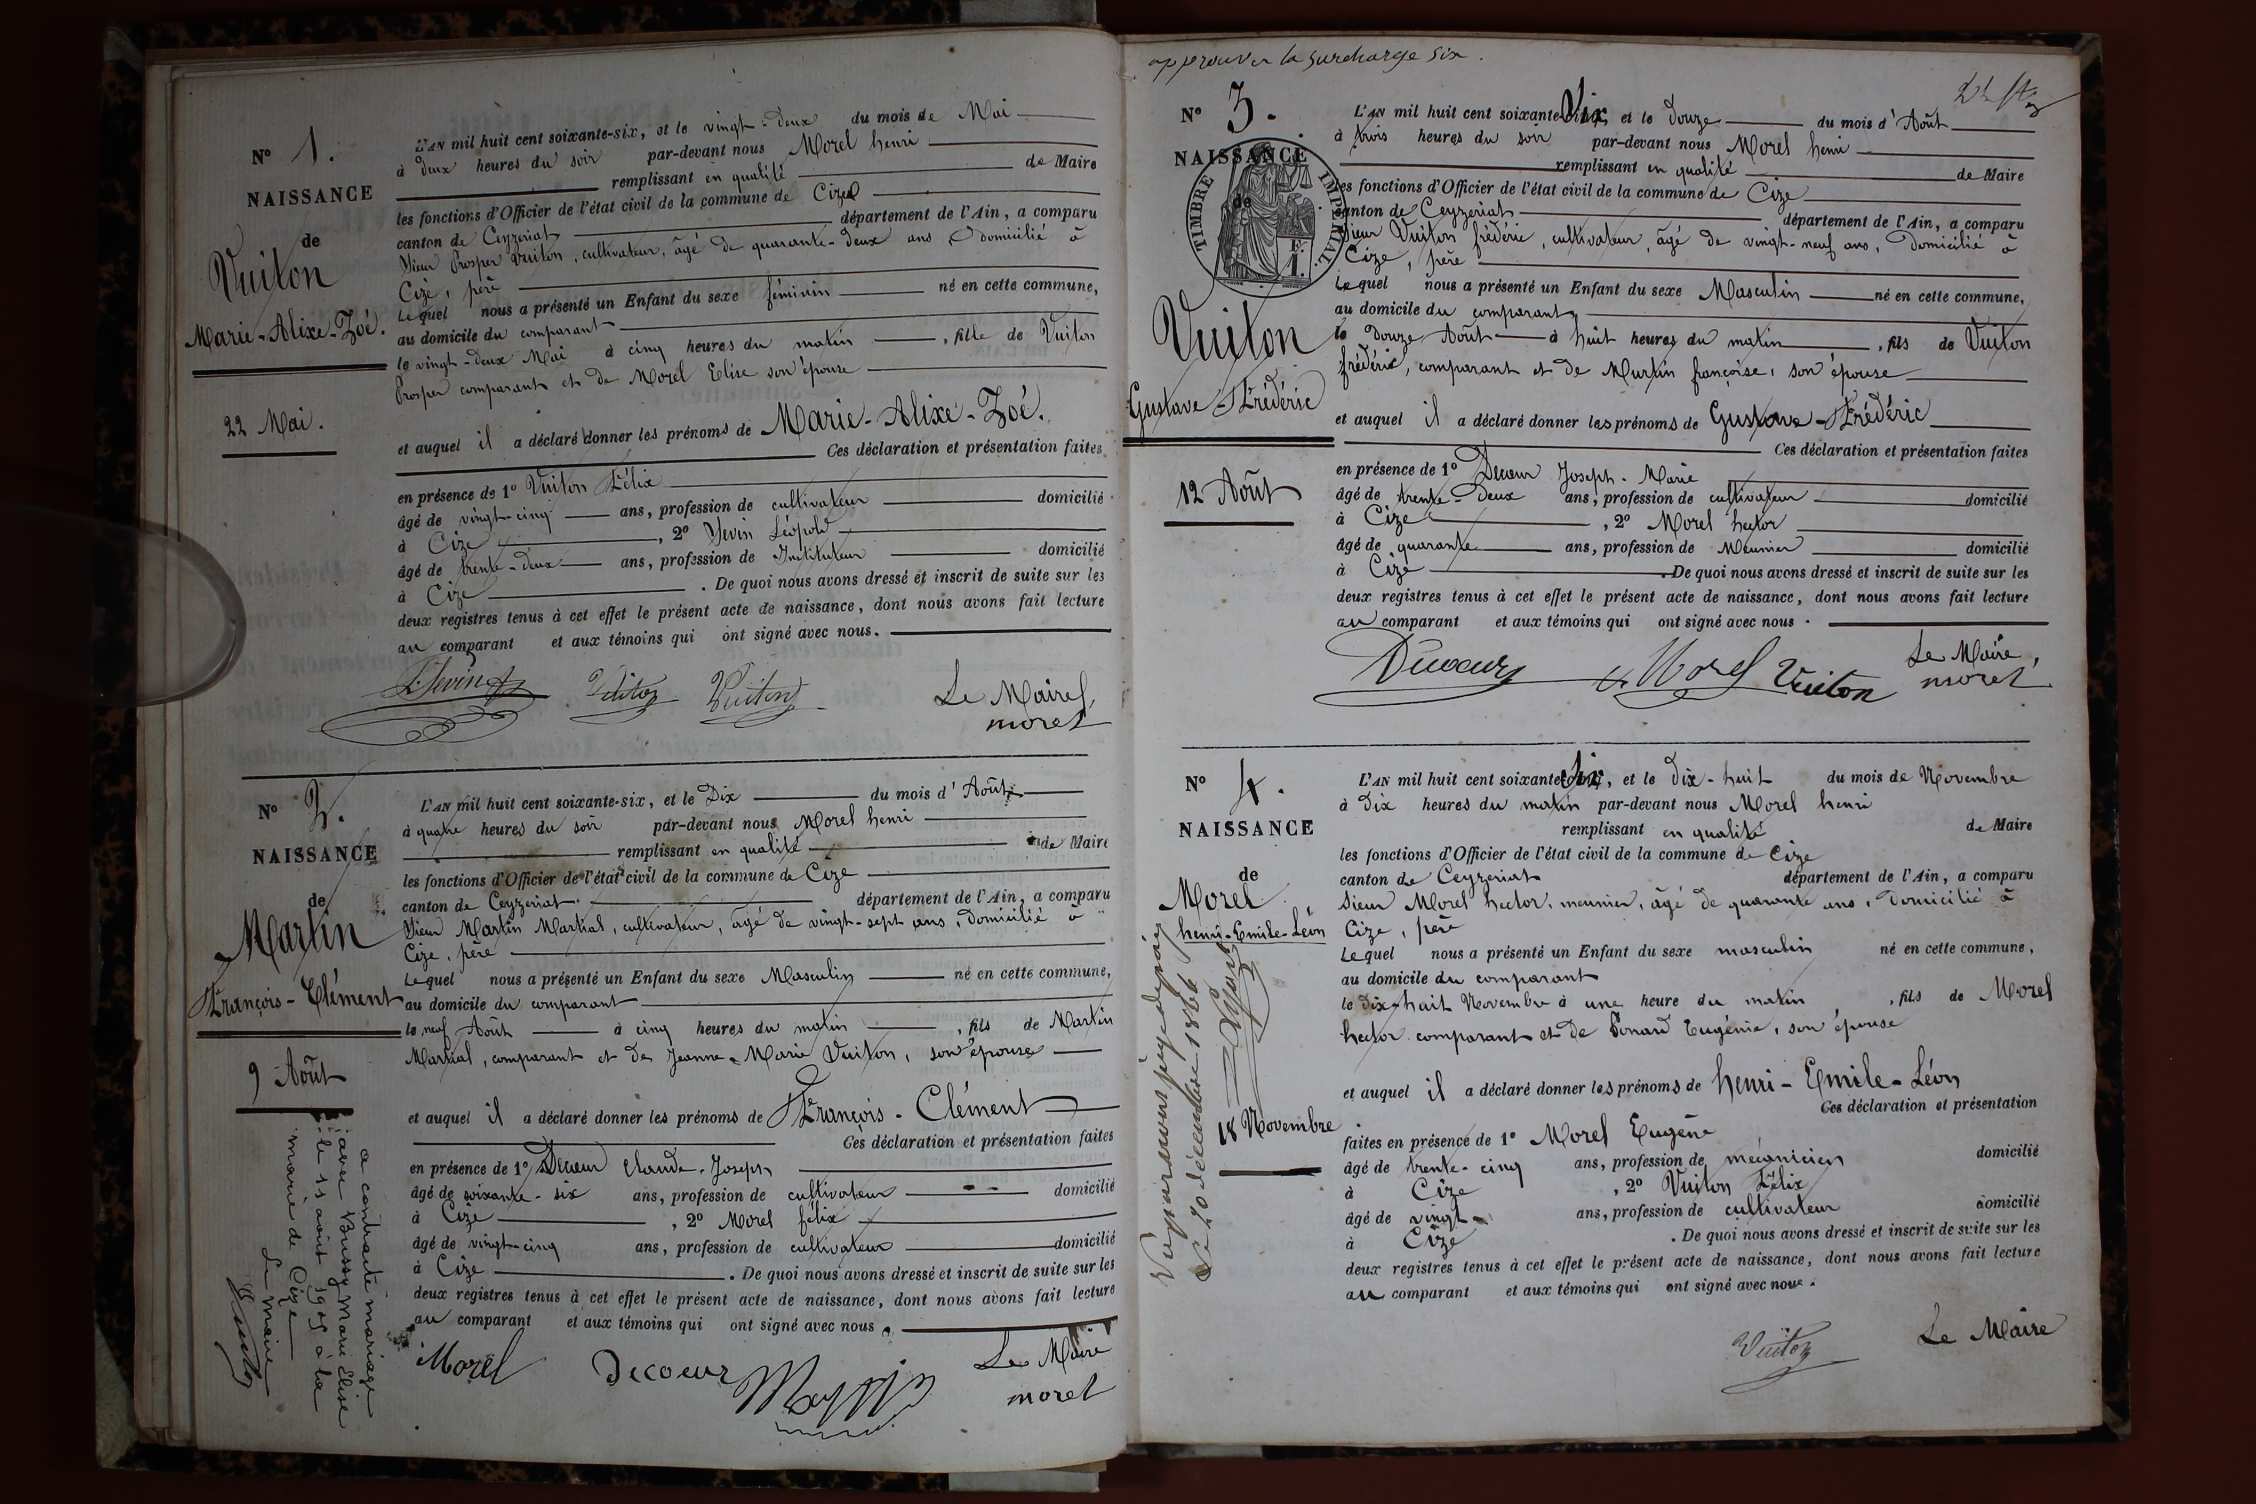 N° 1.
NAISSANCE
de
Vuiton
Marie-Alixe-Zoé.
22 Mai.
L'AN mil huit cent soixante-six, et le vingt-deux du mois de Mai
à deux heures du soir par-devant nous Morel henri
remplissant en qualité de Maire
les fonctions d'Officier de l'état civil de la commune de Cize
canton de Ceyzeriat département de l'Ain, a comparu
Sieur Prosper Vuiton, cultivateur, âgé de quarante-deux ans, domicilié à
Cize, père
Lequel nous a présenté un Enfant du sexe féminin né en cette commune,
au domicile du comparant
le vingt-deux Mai à cinq heures du matin, fille de Vuiton
Prosper comparant et de Morel Elise son épouse
et auquel il a déclaré donner les prénoms de Marie-Alixe-Zoé.
Ces déclaration et présentation faites
en présence de 1° Vuiton Félix
âgé de vingt-cinq ans, profession de cultivateur domicilié
à Cize, 2° Jevin Léopold
âgé de trente-deux ans, profession de Instituteur domicilié
à Cize. De quoi nous avons dressé et inscrit de suite sur les
deux registres tenus à cet effet le présent acte de naissance, dont nous avons fait lecture
au comparant et aux témoins qui ont signé avec nous.
Jevin Vuiton Vuiton Le Maire,
morel
N° 2.
NAISSANCE
de
Martin
François-Clément
9 Août
a contracté mariage
avec Bussy Marie Elise
le 11 août 1905 à la
mairie de Cize
Le maire
L'AN mil huit cent soixante-six, et le Dix du mois d'Août
à quatre heures du soir par-devant nous Morel henri
remplissant en qualité de Maire
les fonctions d'Officier de l'état civil de la commune de Cize
canton de Ceyzeriat département de l'Ain, a comparu
Sieur Martin Martial, cultivateur, âgé de vingt-sept ans, domicilié à
Cize, père
Lequel nous a présenté un Enfant du sexe Masculin né en cette commune,
au domicile du comparant
le neuf Août à cinq heures du matin, fils de Martin
Martial, comparant et de Jeanne-Marie Vuiton, son épouse
et auquel il a déclaré donner les prénoms de François-Clément
Ces déclaration et présentation faites
en présence de 1° Decœur Claude-Joseph
âgé de soixante-six ans, profession de cultivateur domicilié
à Cize, 2° Morel félix
âgé de vingt-cinq ans, profession de cultivateur domicilié
à Cize. De quoi nous avons dressé et inscrit de suite sur les
deux registres tenus à cet effet le présent acte de naissance, dont nous avons fait lecture
au comparant et aux témoins qui ont signé avec nous.
Morel Decoeur Martin Le Maire
morel
approuver la surcharge six.
N° 3.
NAISSANCE
de
TIMBRE IMPERIAL
F. 1.
Vuiton
Gustave-Frédéric
12 Août
L'AN mil huit cent soixante-six, et le Douze du mois d'Août
à trois heures du soir par-devant nous Morel henri
remplissant en qualité de Maire
les fonctions d'Officier de l'état civil de la commune de Cize
canton de Ceyzeriat département de l'Ain, a comparu
Sieur Vuiton frédéric, cultivateur, âgé de vingt-neuf ans, Domicilié à
Cize, père
Lequel nous a présenté un Enfant du sexe Masculin né en cette commune,
au domicile du comparant
le Douze Août à huit heures du matin, fils de Vuiton
frédéric, comparant et de Martin françoise, son épouse
et auquel il a déclaré donner les prénoms de Gustave-Frédéric
Ces déclaration et présentation faites
en présence de 1° Decœur Joseph-Marie
âgé de trente-Deux ans, profession de cultivateur domicilié
à Cize, 2° Morel hector
âgé de quarante ans, profession de Meunier domicilié
à Cize. De quoi nous avons dressé et inscrit de suite sur les
deux registres tenus à cet effet le présent acte de naissance, dont nous avons fait lecture
au comparant et aux témoins qui ont signé avec nous.
Decoeur Morel Vuiton Le Maire,
morel
N° 4.
NAISSANCE
de
Morel
henri-Emile-Léon
18 Novembre
Vu par nous juge de paix
Le 20 décembre 1866
L'AN mil huit cent soixante-six, et le Dix-huit du mois de Novembre
à Dix heures du matin par-devant nous Morel henri
remplissant en qualité de Maire
les fonctions d'Officier de l'état civil de la commune de Cize
canton de Ceyzeriat département de l'Ain, a comparu
Sieur Morel hector, meunier, âgé de quarante ans, Domicilié à
Cize, père
Lequel nous a présenté un Enfant du sexe masculin né en cette commune,
au domicile du comparant
le Dix-huit Novembre à une heure du matin, fils de Morel
hector comparant et de Eugénie, son épouse
et auquel il a déclaré donner les prénoms de henri-Emile-Léon
Ces déclaration et présentation
faites en présence de 1° Morel Eugène
âgé de trente-cinq ans, profession de mécanicien domicilié
à Cize, 2° Vuiton Félix
âgé de vingt- ans, profession de cultivateur domicilié
à Cize. De quoi nous avons dressé et inscrit de suite sur les
deux registres tenus à cet effet le présent acte de naissance, dont nous avons fait lecture
au comparant et aux témoins qui ont signé avec nous.
Vuiton Le Maire